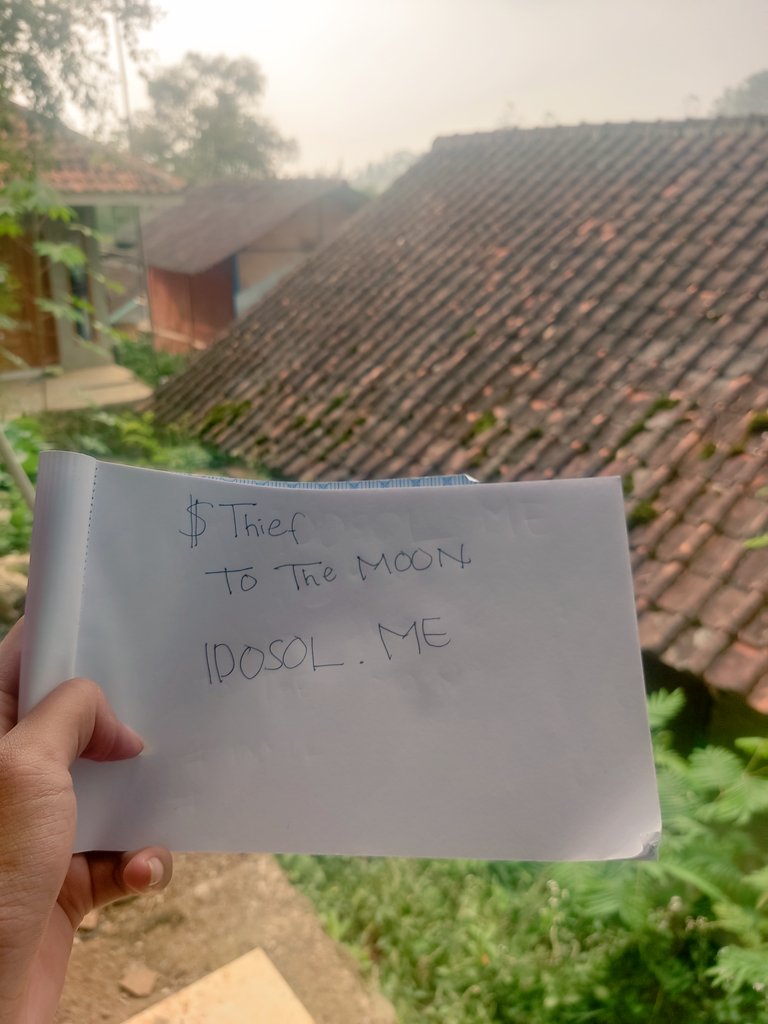 $ Thief
To The MOON
IDOSOL. ME